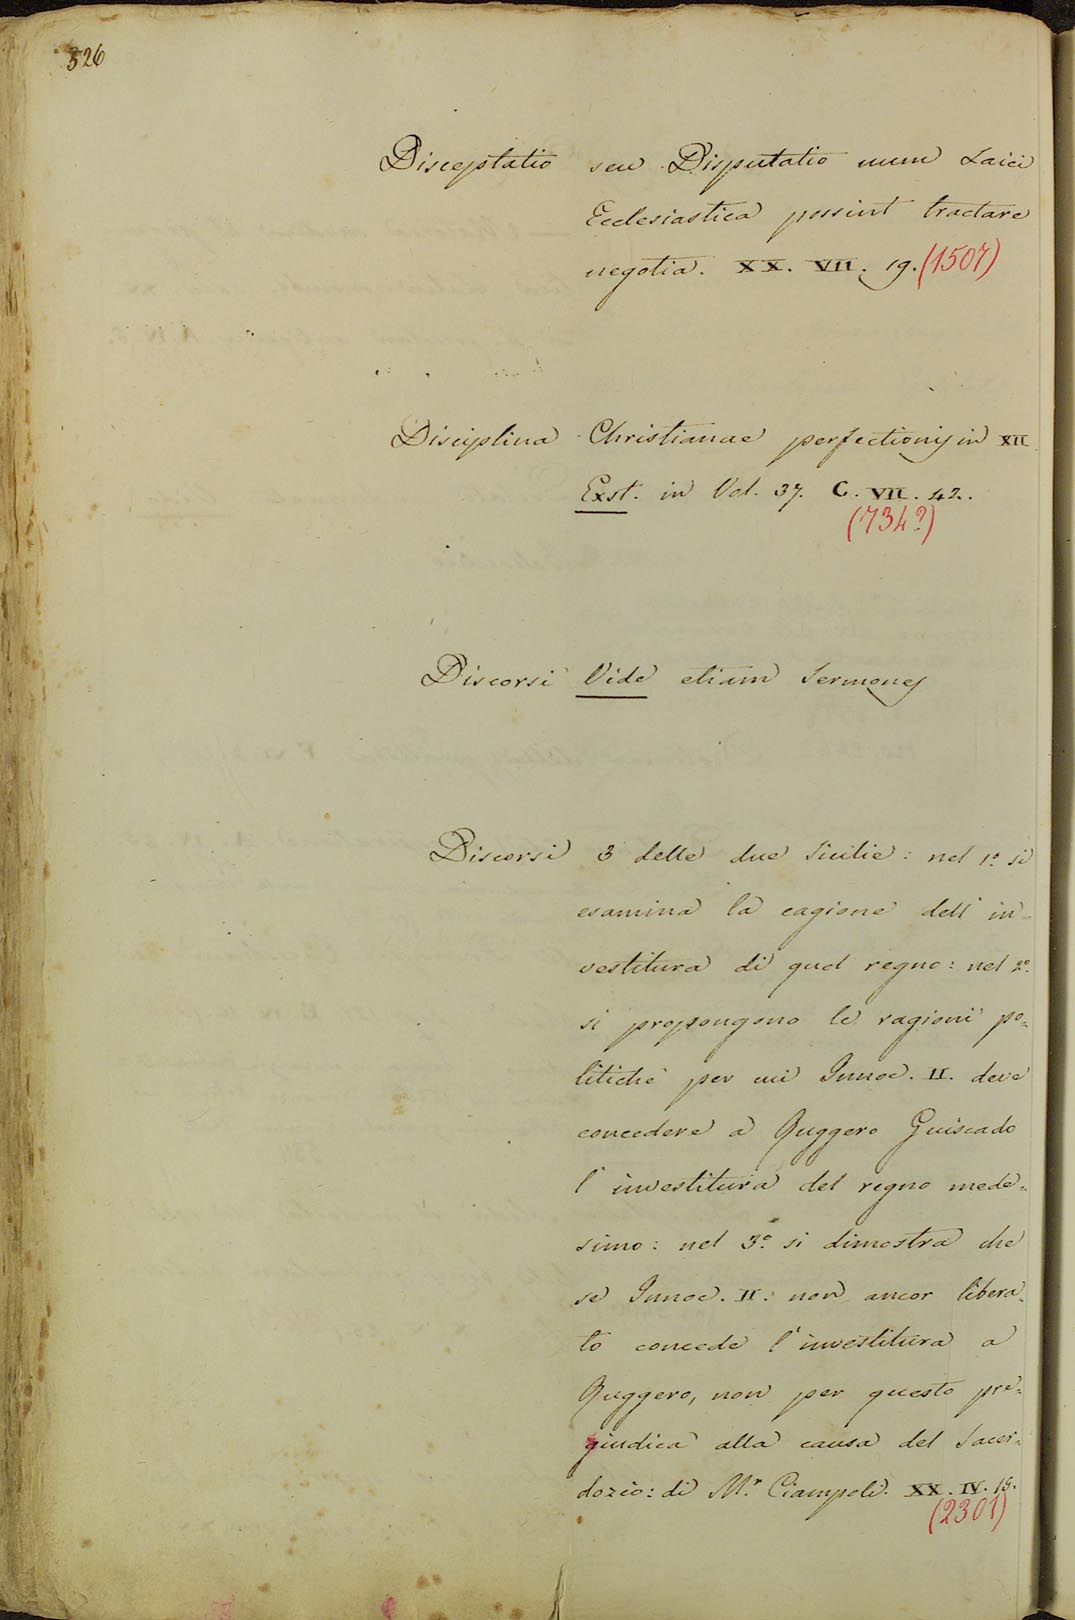 326
Disceptatio seu Disputatio num Laici
Ecclesiastica possint tractare
negotia. XX. VII. 19. (1507)
Disciplina Christianae perfectionis in XII
Exst. in Vol. 37. C. VII. 42.
(734?)
Discorsi Vide etiam Sermones
Discorsi 3 delle due Sicilie: nel 1º si
esamina la cagione dell' in-
vestitura di quel regno: nel 2º
si propongono le ragioni po-
litiche per cui Innoc. II. deve
concedere a Ruggero Guiscado
l'investitura del regno mede-
simo: nel 3º si dimostra che
se Innoc. II. non ancor libera-
to concede l'investitura a
Ruggero, non per questo pre-
giudica alla causa del Sacer-
dozio: di Mr Ciampoli. XX. IV. 15.
(2301)